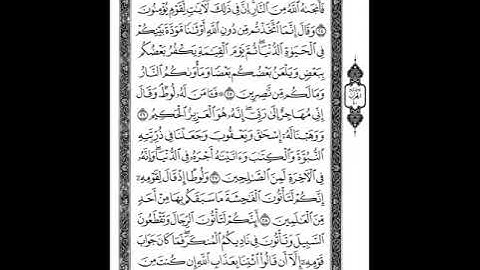 فَأَنجَىٰهُ ٱللَّهُ مِنَ ٱلنَّارِ إِنَّ فِى ذَٰلِكَ لَـَٔايَٰتٍ لِّقَوْمٍ يُؤْمِنُونَ
٢٤ وَقَالَ إِنَّمَا ٱتَّخَذْتُم مِّن دُونِ ٱللَّهِ أَوْثَٰنًا مَّوَدَّةَ بَيْنِكُمْ
فِى ٱلْحَيَوٰةِ ٱلدُّنْيَا ثُمَّ يَوْمَ ٱلْقِيَٰمَةِ يَكْفُرُ بَعْضُكُم
بِبَعْضٍ وَيَلْعَنُ بَعْضُكُم بَعْضًا وَمَأْوَىٰكُمُ ٱلنَّارُ
وَمَا لَكُم مِّن نَّٰصِرِينَ ٢٥ فَـَٔامَنَ لَهُۥ لُوطٌ وَقَالَ
إِنِّى مُهَاجِرٌ إِلَىٰ رَبِّىٓ إِنَّهُۥ هُوَ ٱلْعَزِيزُ ٱلْحَكِيمُ ٢٦
وَوَهَبْنَا لَهُۥٓ إِسْحَٰقَ وَيَعْقُوبَ وَجَعَلْنَا فِى ذُرِّيَّتِهِ
ٱلنُّبُوَّةَ وَٱلْكِتَٰبَ وَءَاتَيْنَٰهُ أَجْرَهُۥ فِى ٱلدُّنْيَا وَإِنَّهُۥ
فِى ٱلْـَٔاخِرَةِ لَمِنَ ٱلصَّٰلِحِينَ ٢٧ وَلُوطًا إِذْ قَالَ لِقَوْمِهِۦٓ
إِنَّكُمْ لَتَأْتُونَ ٱلْفَٰحِشَةَ مَا سَبَقَكُم بِهَا مِنْ أَحَدٍ
مِّنَ ٱلْعَٰلَمِينَ ٢٨ أَئِنَّكُمْ لَتَأْتُونَ ٱلرِّجَالَ وَتَقْطَعُونَ
ٱلسَّبِيلَ وَتَأْتُونَ فِى نَادِيكُمُ ٱلْمُنكَرَ فَمَا كَانَ جَوَابَ
قَوْمِهِۦٓ إِلَّآ أَن قَالُوا۟ ٱئْتِنَا بِعَذَابِ ٱللَّهِ إِن كُنتَ مِنَ